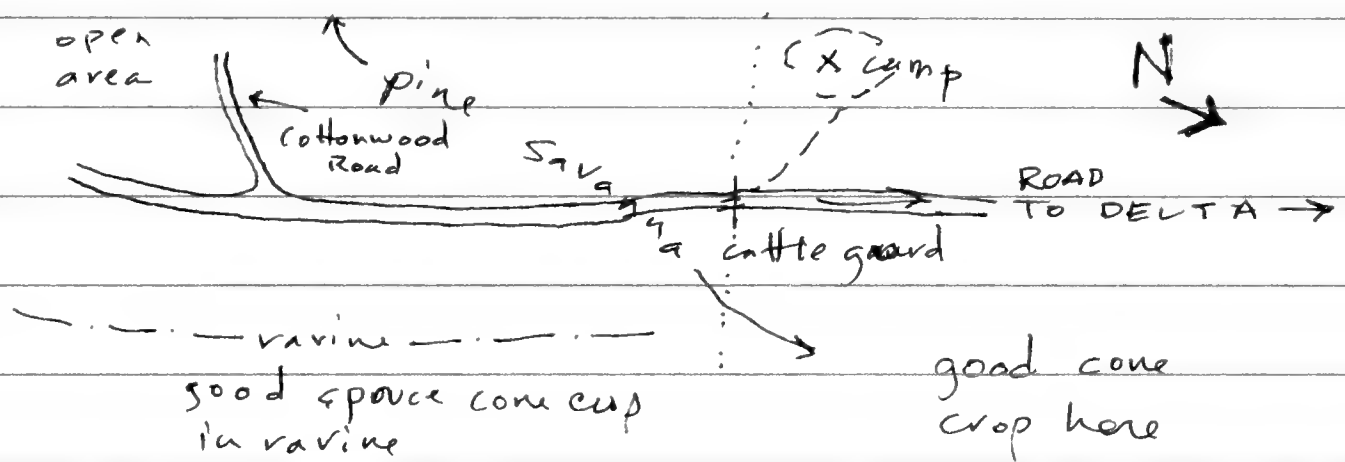 open
area
pine
X camp
N
Cottonwood
Road
ROAD
TO DELTA
cattle guard
ravine
good spouce cone cup
in ravine
good cone
crop here